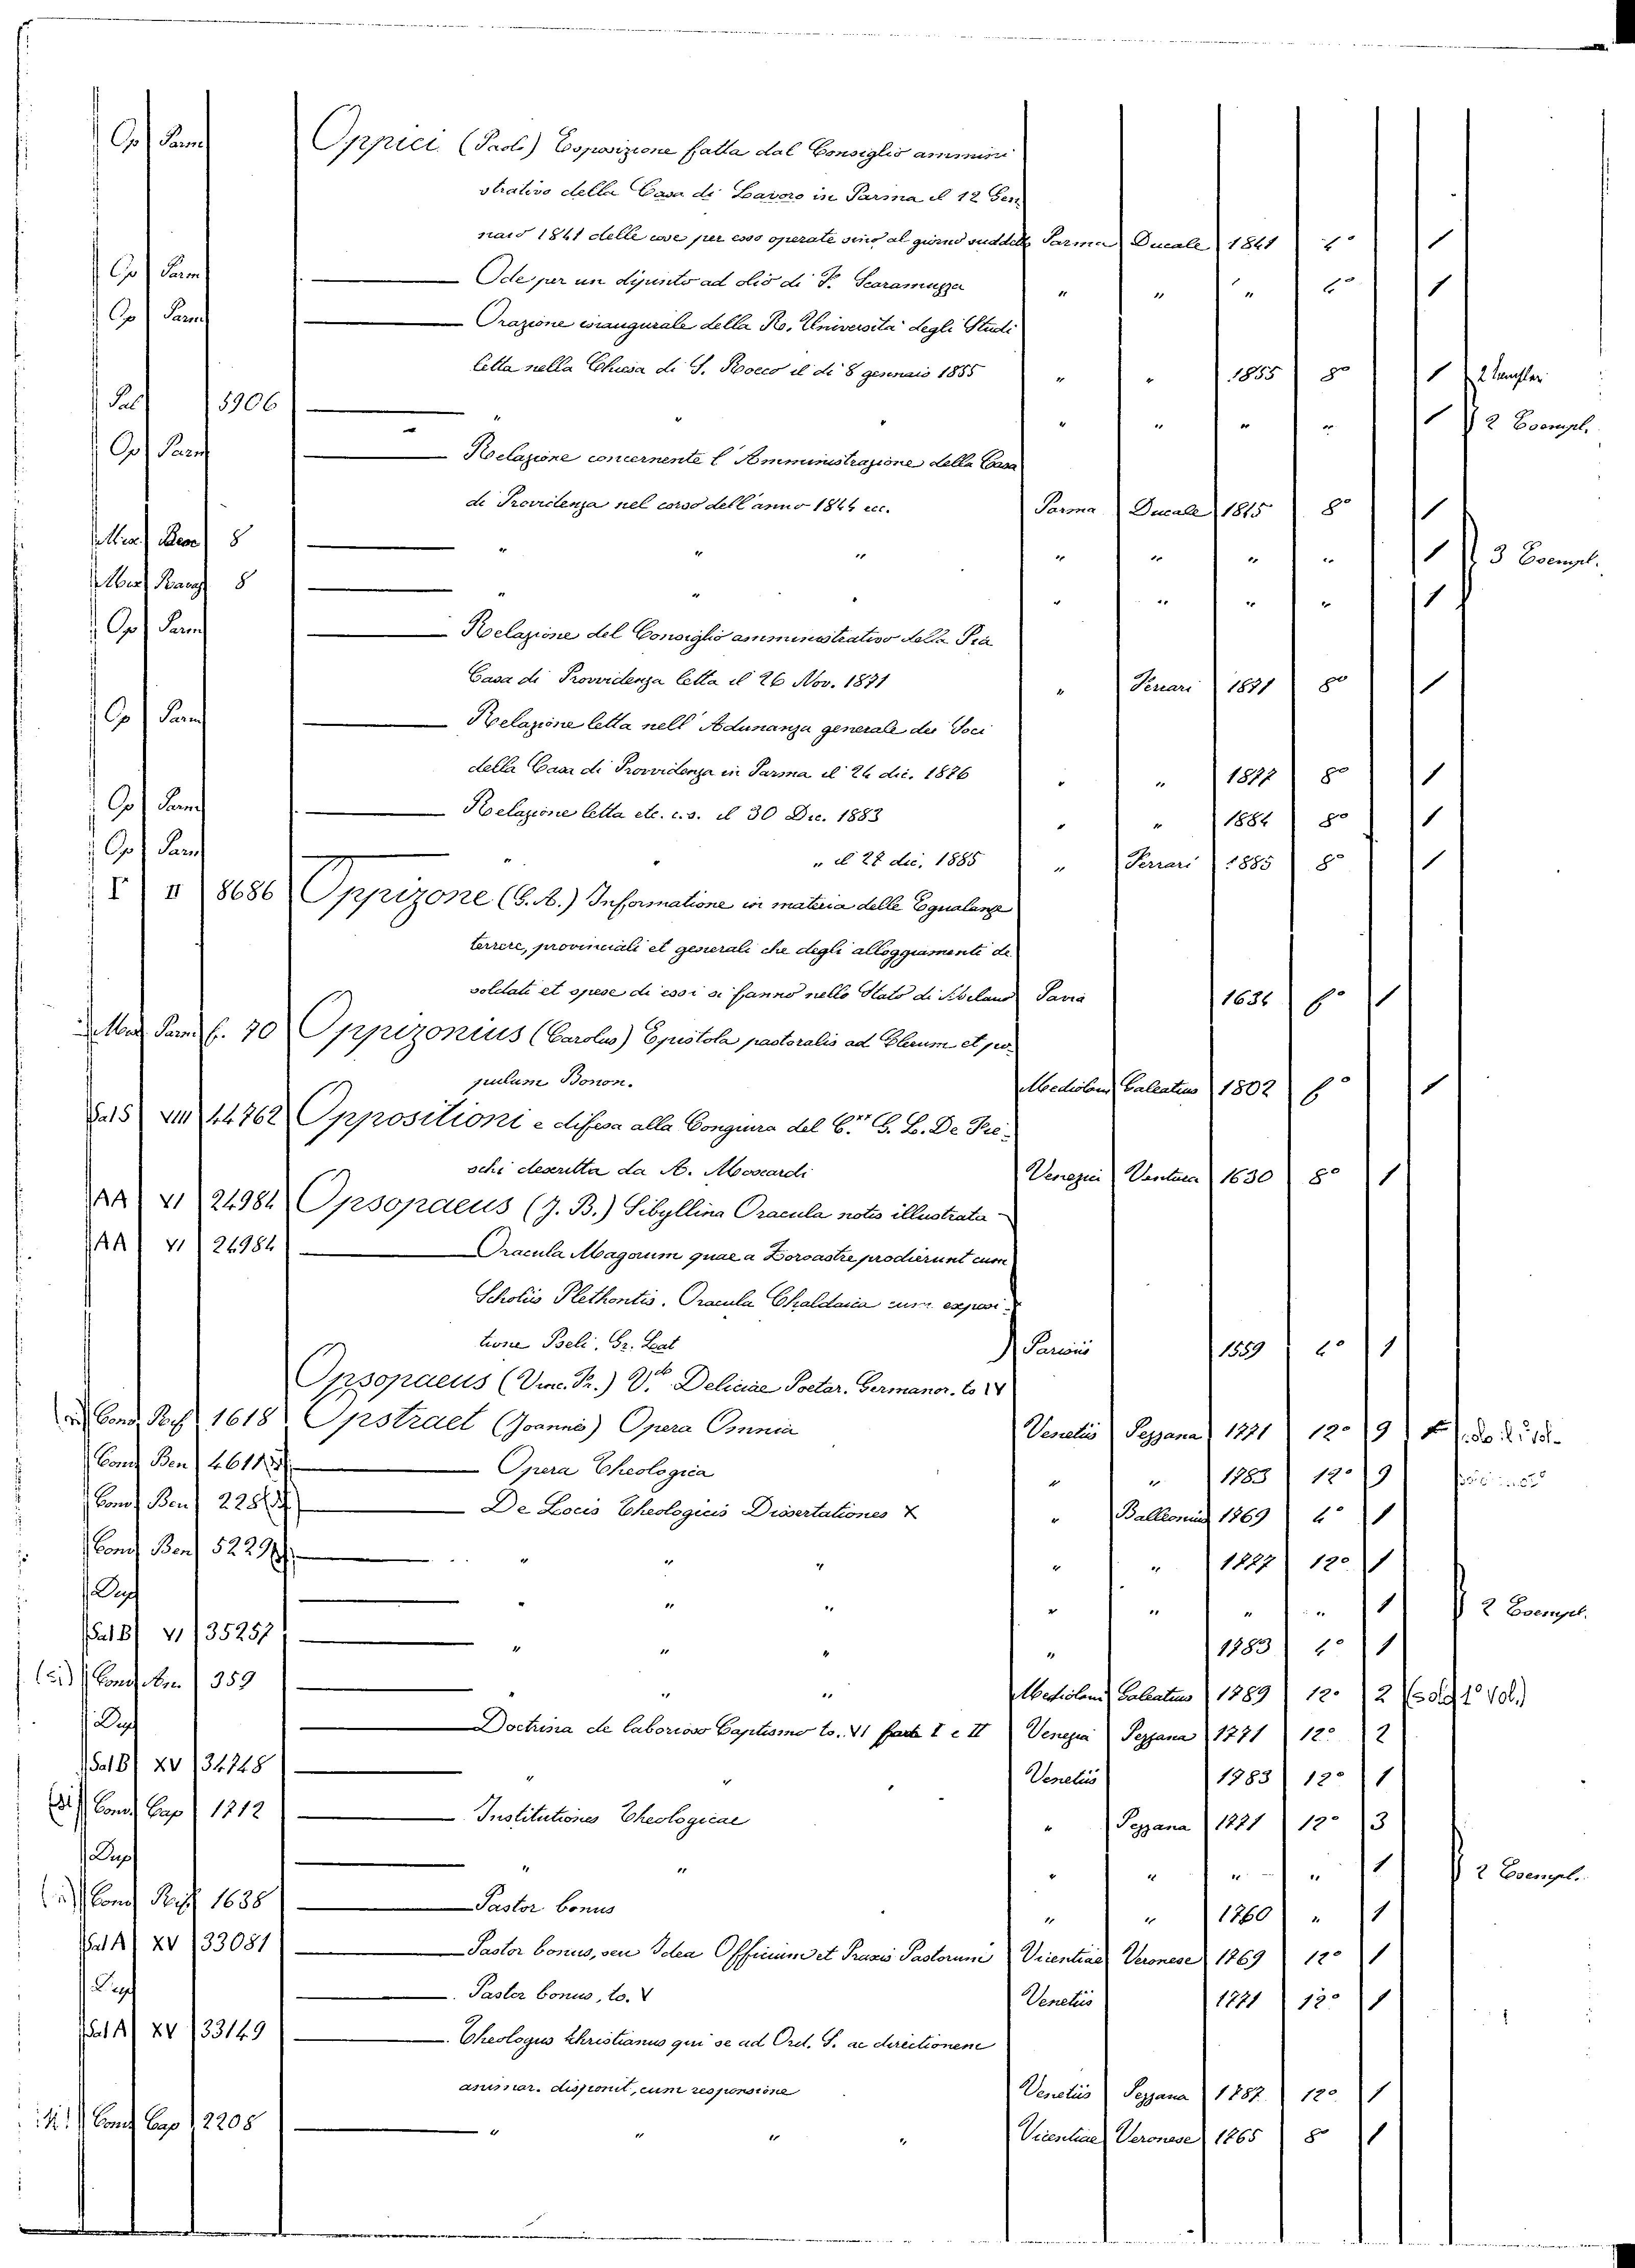 Op Parm Oppici (Paolo) Esposizione fatta dal Consiglio ammini
strativo della Casa di Lavoro in Parma il 12 Gen
naio 1841 delle cose per esso operate sino al giorno suddetto Parma Ducale 1841 4° 1
Op Parm Ode per un dipinto ad olio di F. Scaramuzza " " " 4° 1
Op Parm Orazione inaugurale della R. Università degli Studi
letta nella Chiesa di S. Rocco il dì 8 gennaio 1855 " " 1855 8° 1
Pal 5906 " " " " " " " 1 2 Esempl.
Op Parm Relazione concernente l'Amministrazione della Casa
di Providenza nel corso dell'anno 1844 ecc. Parma Ducale 1845 8° 1
8 " " " " " " " 1 3 Esempl.
8 " " " " " " " 1
Op Parm Relazione del Consiglio amministrativo della Pia
Casa di Provvidenza letta il 26 Nov. 1871 " Ferrari 1871 8° 1
Op Parm Relazione letta nell'Adunanza generale dei Soci
della Casa di Provvidenza in Parma il 24 dic. 1876 " " 1877 8° 1
Op Parm Relazione letta etc. c.s. il 30 Dic. 1883 " " 1884 8° 1
Op Parm " " " il 27 dic. 1885 " Ferrari 1885 8° 1
Γ II 8686 Oppizone (G. A.) Informatione in materia delle Egualanze
terrere, provinciali et generali che degli alloggiamenti de
soldati et spese di essi si fanno nello Stato di Milano Pavia 1634 f° 1
Parm f. 70 Oppizonius (Carolus) Epistola pastoralis ad Clerum et po-
pulum Bonon. Mediolani Galeatius 1802 f° 1
VIII 44762 Oppositioni e difesa alla Congiura del C.te G. L. De Fie-
schi descritta da A. Mascardi Venezia Ventura 1630 8° 1
AA VI 24984 Opsopaeus (J. B.) Sibyllina Oracula notis illustrata -
AA VI 24984 Oracula Magorum quae a Zoroastre prodierunt cum
Scholiis Plethontis. Oracula Chaldaica cum exposi-
tione Pseli. Gr. Lat Parisiis 1589 4° 1
Opsopaeus (Vinc. Fr.) V.de Deliciae Poetar. Germanor. to IV
1618 Opstraet (Joannis) Opera Omnia Venetiis Pezzana 1771 12° 9
Cons Ben 4611 Opera Theologica " " 1783 12° 9
Cons Ben 228 De Locis Theologicis Dissertationes X " Balleonius 1769 4° 1
Cons Ben 5229 " " " " " 1777 12° 1
Dup " " " " " " " 1 2 Esempl.
Sal B VI 35257 " " " " 1783 4° 1
359 " " " Mediolani Galeatius 1789 12° 2 (solo 1° vol.)
Dup Doctrina de laborioso Baptismo to. VI parte I e II Venezia Pezzana 1771 12° 2
Sal B XV 34748 " " Venetiis 1783 12° 1
Cons Cap 1712 Institutiones Theologicae " Pezzana 1771 12° 3
Dup " " " " " " 1 2 Esempl.
1638 Pastor bonus " " 1760 " 1
Sal A XV 33081 Pastor bonus, seu Idea Officium et Praxis Pastorum Vicentiae Veronese 1769 12° 1
Dup Pastor bonus, to. V Venetiis 1771 12° 1
Sal A XV 33149 Theologus Christianus qui se ad Ord. S. ac directionem
animar. disponit, cum responsione Venetiis Pezzana 1787 12° 1
Cons Cap 2208 " " " " Vicentiae Veronese 1765 8° 1